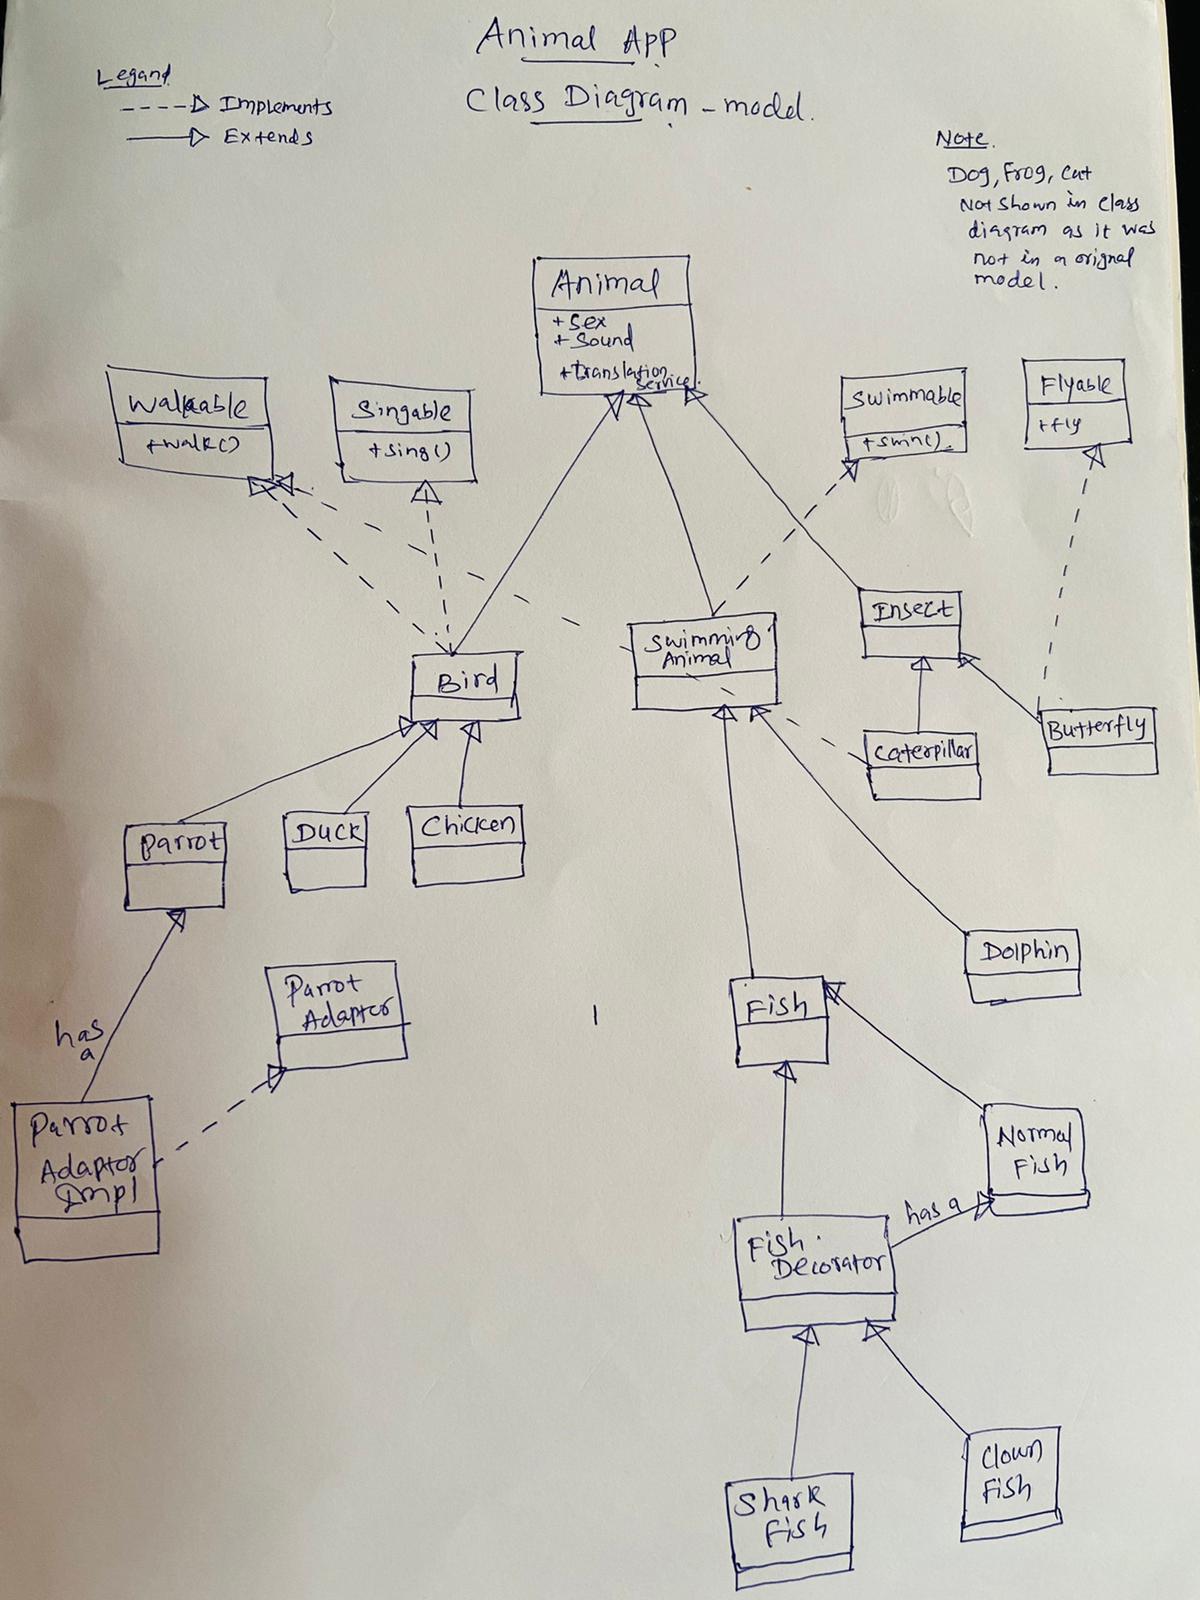 Animal APP
Class Diagram - model.
Legand
Implements
Extends
Note.
Dog, Frog, Cat
Not shown in class
diagram as it was
not in a orignal
model.
Animal
+ Sex
+ Sound
+ translation
service.
Walkable
+walk()
Singable
+sing()
Swimmable
+swim()
Flyable
+fly
Bird
Swimming
Animal
Insect
Caterpillar
Butterfly
Parrot
Duck
Chicken
Dolphin
Parrot
Adapter
Fish
has
a
Parrot
Adaptor
Impl
Normal
Fish
has a
Fish
Decorator
Clown
Fish
Shark
Fish